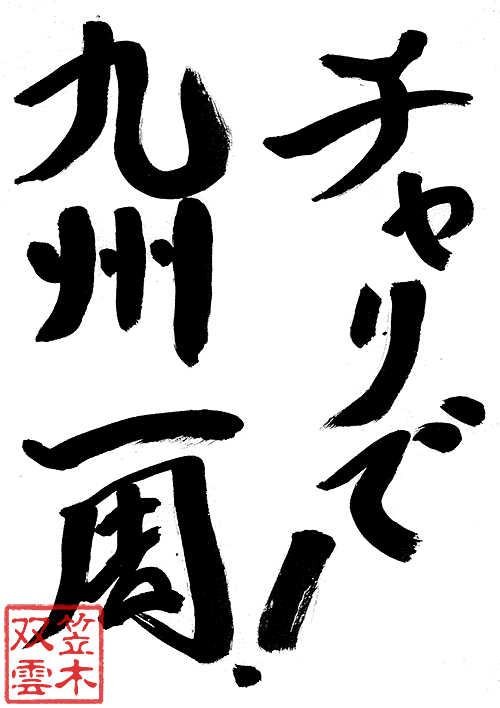 チャリで
九州一周!
笠木
双雲